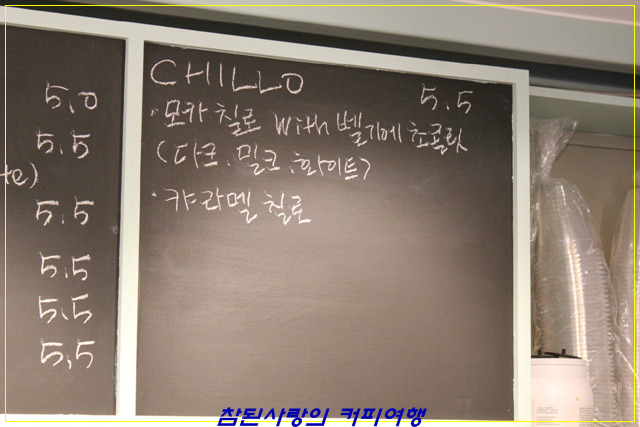 5.0
5.5
te)
5.5
5.5
5.5
5,5
CHILLO
5.5
·모카 칠로 with 벨기에 초콜릿
(다크, 밀크, 화이트)
· 캬라멜 칠로
참된사랑의 커피여행